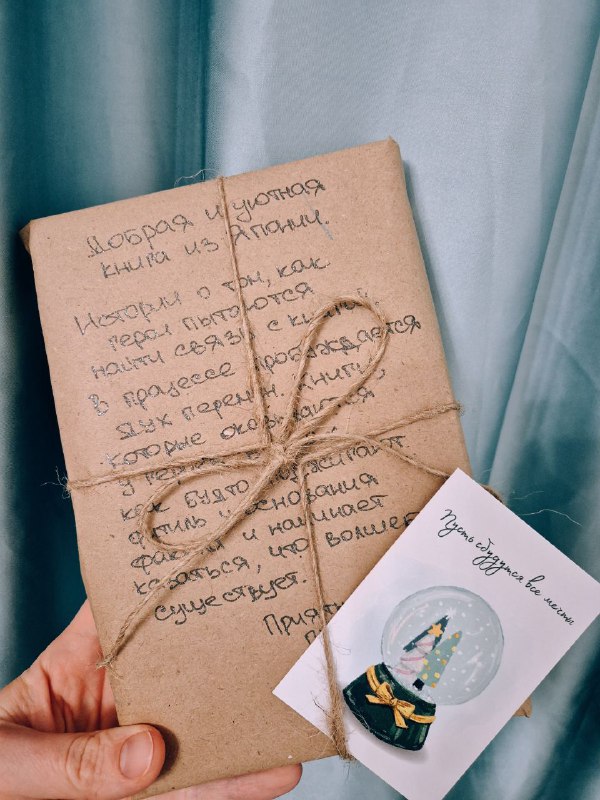 Добрая и уютная
книга из Японии.
Истории о том, как
герои пытаются
найти связь с книгой.
В процессе пробуждается
дух перемен. Книги,
которые оказываются
у
как будто оживают
стиль и основания
и начинает
казаться, что
существует.
Пусть сбудутся все мечты